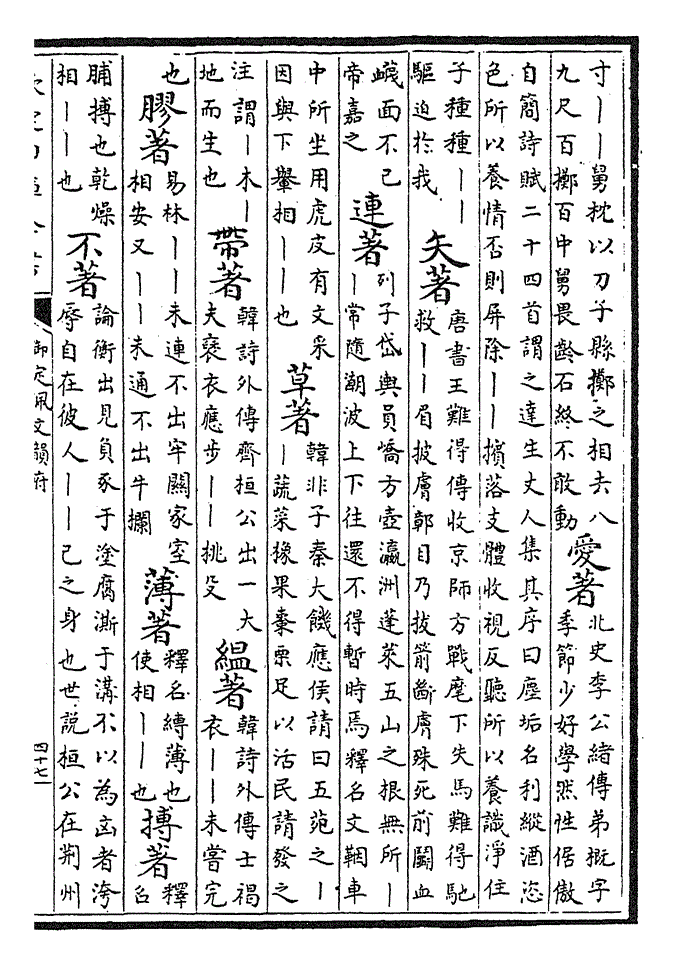 寸丨丨舅枕以刀子縣擲之相去八
九尺百擲百中舅畏齡石終不敢動
愛著
北史李公緒傳弟概字
季節少好學然性倨傲
自簡詩賦二十四首謂之達生丈人集其序曰塵垢名利縱酒恣
色所以養情否則屏除丨丨擯落支體收視反聽所以養識淨住
子種種丨丨
驅迫於我
矢著
唐書王難得傳收京師方戰麾下失馬難得馳
救丨丨眉披膚鄣目乃拔箭斷膚殊死前鬭血
衊面不已
帝嘉之
連著
列子岱輿員嶠方壺瀛洲蓬萊五山之根無所丨
丨常隨潮波上下往還不得暫時焉釋名文鞇車
中所坐用虎皮有文采
因與下轝相丨丨也
草著
韓非子秦大饑應侯請曰五苑之丨
丨蔬菜橡果棗栗足以活民請發之
注謂丨木丨
地而生也
帶著
韓詩外傳齊桓公出一大
夫裦衣應步丨丨挑殳
緼著
韓詩外傳士褐
衣丨丨未嘗完
也
膠著
易林丨丨未連不出牢關家室
相安又丨丨未通不出牛欄
薄著
釋名縛薄也
使相丨丨也
搏著
釋
名
脯搏也乾燥
相丨丨也
不著
論衡出見負豕于塗腐澌于溝不以為凶者洿
辱自在彼人丨丨己之身也世說桓公在荆州
御定佩文韻府
四十七